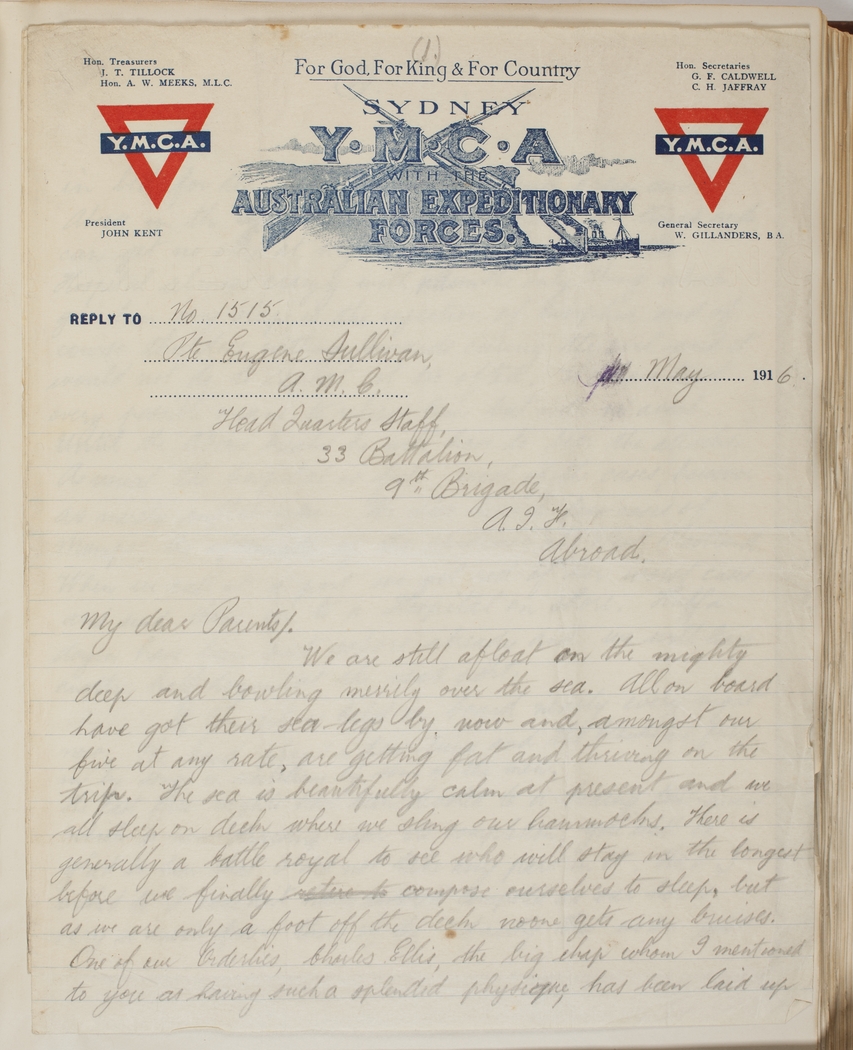 (1.)
Hon. Treasurers
J. T. TILLOCK
Hon. A. W. MEEKS, M.L.C.
For God, For King & For Country
Hon. Secretaries
G. F. CALDWELL
C. H. JAFFRAY
SYDNEY
Y.M.C.A.
Y·M·C·A
Y.M.C.A.
WITH THE
AUSTRALIAN EXPEDITIONARY
FORCES.
President
JOHN KENT
General Secretary
W. GILLANDERS, B.A.
REPLY TO No 1515.
Pte Eugene Sullivan,
A. M. C.
May 1916.
Head Quarters Staff,
33 Battalion,
9th Brigade,
A. I. F.
Abroad.
My dear Parents/.
We are still afloat on the mighty
deep and bowling merrily over the sea. All on board
have got their sea-legs by now and, amongst our
five at any rate, are getting fat and thriving on the
trip. The sea is beautifully calm at present and we
all sleep on deck where we sling our hammocks. There is
generally a battle royal to see who will stay in the longest
before we finally retire to compose ourselves to sleep, but
as we are only a foot off the deck noone gets any bruises.
One of our Orderlies, Charles Ellis, the big chap whom I mentioned
to you as having such a splendid physique, has been laid up